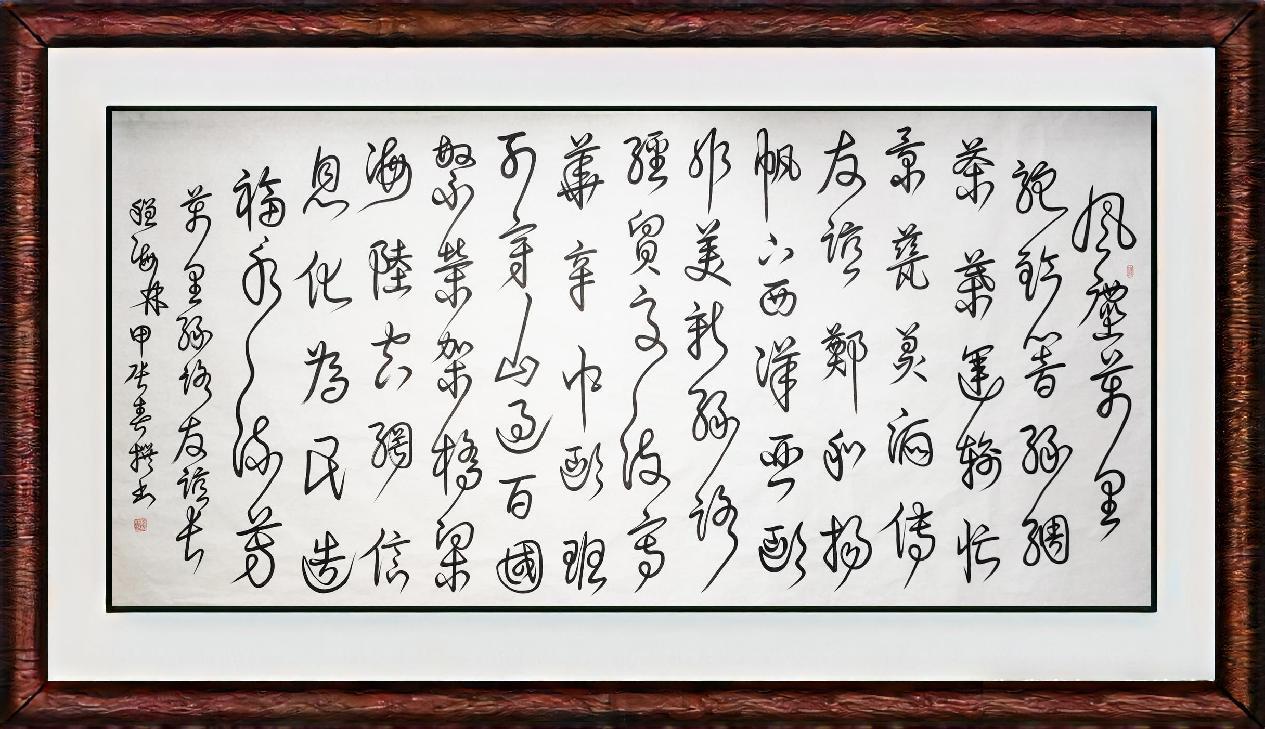 風塵萬里
駝鈴響絲綢
茶葉運輸忙
景瓷美酒傳
友誼鄭和揚
帆下西洋亞歐
非美新絲路
經貿寫
華章中歐班
列穿山過百國
繁榮架橋梁
海陸空網信
息化為民造
福永流芳
萬里絲路友誼長
海林甲辰春撰书